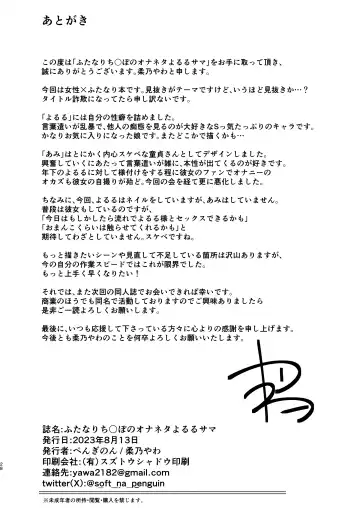 あとがき
この度は「ふたなりち〇ぽのオナネタよるるサマ」をお手に取って頂き、
誠にありがとうございます。柔乃やわと申します。
今回は女性×ふたなり本です。見抜きがテーマですけど、いうほど見抜きか…？
タイトル詐欺になってたら申し訳ないです。
「よるる」には自分の性癖を詰めました。
言葉遣いが乱暴で、他人の痴態を見るのが大好きなSっ気たっぷりのキャラです。
かなりお気に入りになった娘です。またどこかで描くかも…
「あみ」はとにかく内心スケベな童貞さんとしてデザインしました。
興奮していくにあたって言葉遣いが雑に、本性が出てくるのが好きです。
年下のよるるに対して様付けをする程に彼女のファンでオナニーの
オカズも彼女の自撮りが殆ど。今回の会を経て更に悪化しました。
ちなみに、今回、よるるはネイルをしていますが、あみはしていません。
普段は彼女もしているのですが、
「今日はもしかしたら流れでよるる様とセックスできるかも」
「おまんこくらいは触らせてくれるかも」と
期待してわざとしていません。スケベですね。
もっと描きたいシーンや見直して不足している箇所は沢山ありますが、
今の自分の作業スピードではこれが限界でした。
もっと上手く早くなりたい！
それでは、また次回の同人誌でお会いできれば幸いです。
商業のほうでも同名で活動しておりますのでご興味ありましたら
是非ご一読よろしくお願いします。
最後に、いつも応援して下さっている方々に心よりの感謝を申し上げます。
今後とも柔乃やわのことを何卒よろしくお願いいたします。
誌名:ふたなりち〇ぽのオナネタよるるサマ
発行日:2023年8月13日
発行者:ぺんぎのん / 柔乃やわ
印刷会社:(有)スズトウシャドウ印刷
連絡先:yawa2182@gmail.com
twitter(X):@soft_na_penguin
※未成年者の所持・閲覧・購入を禁じます。